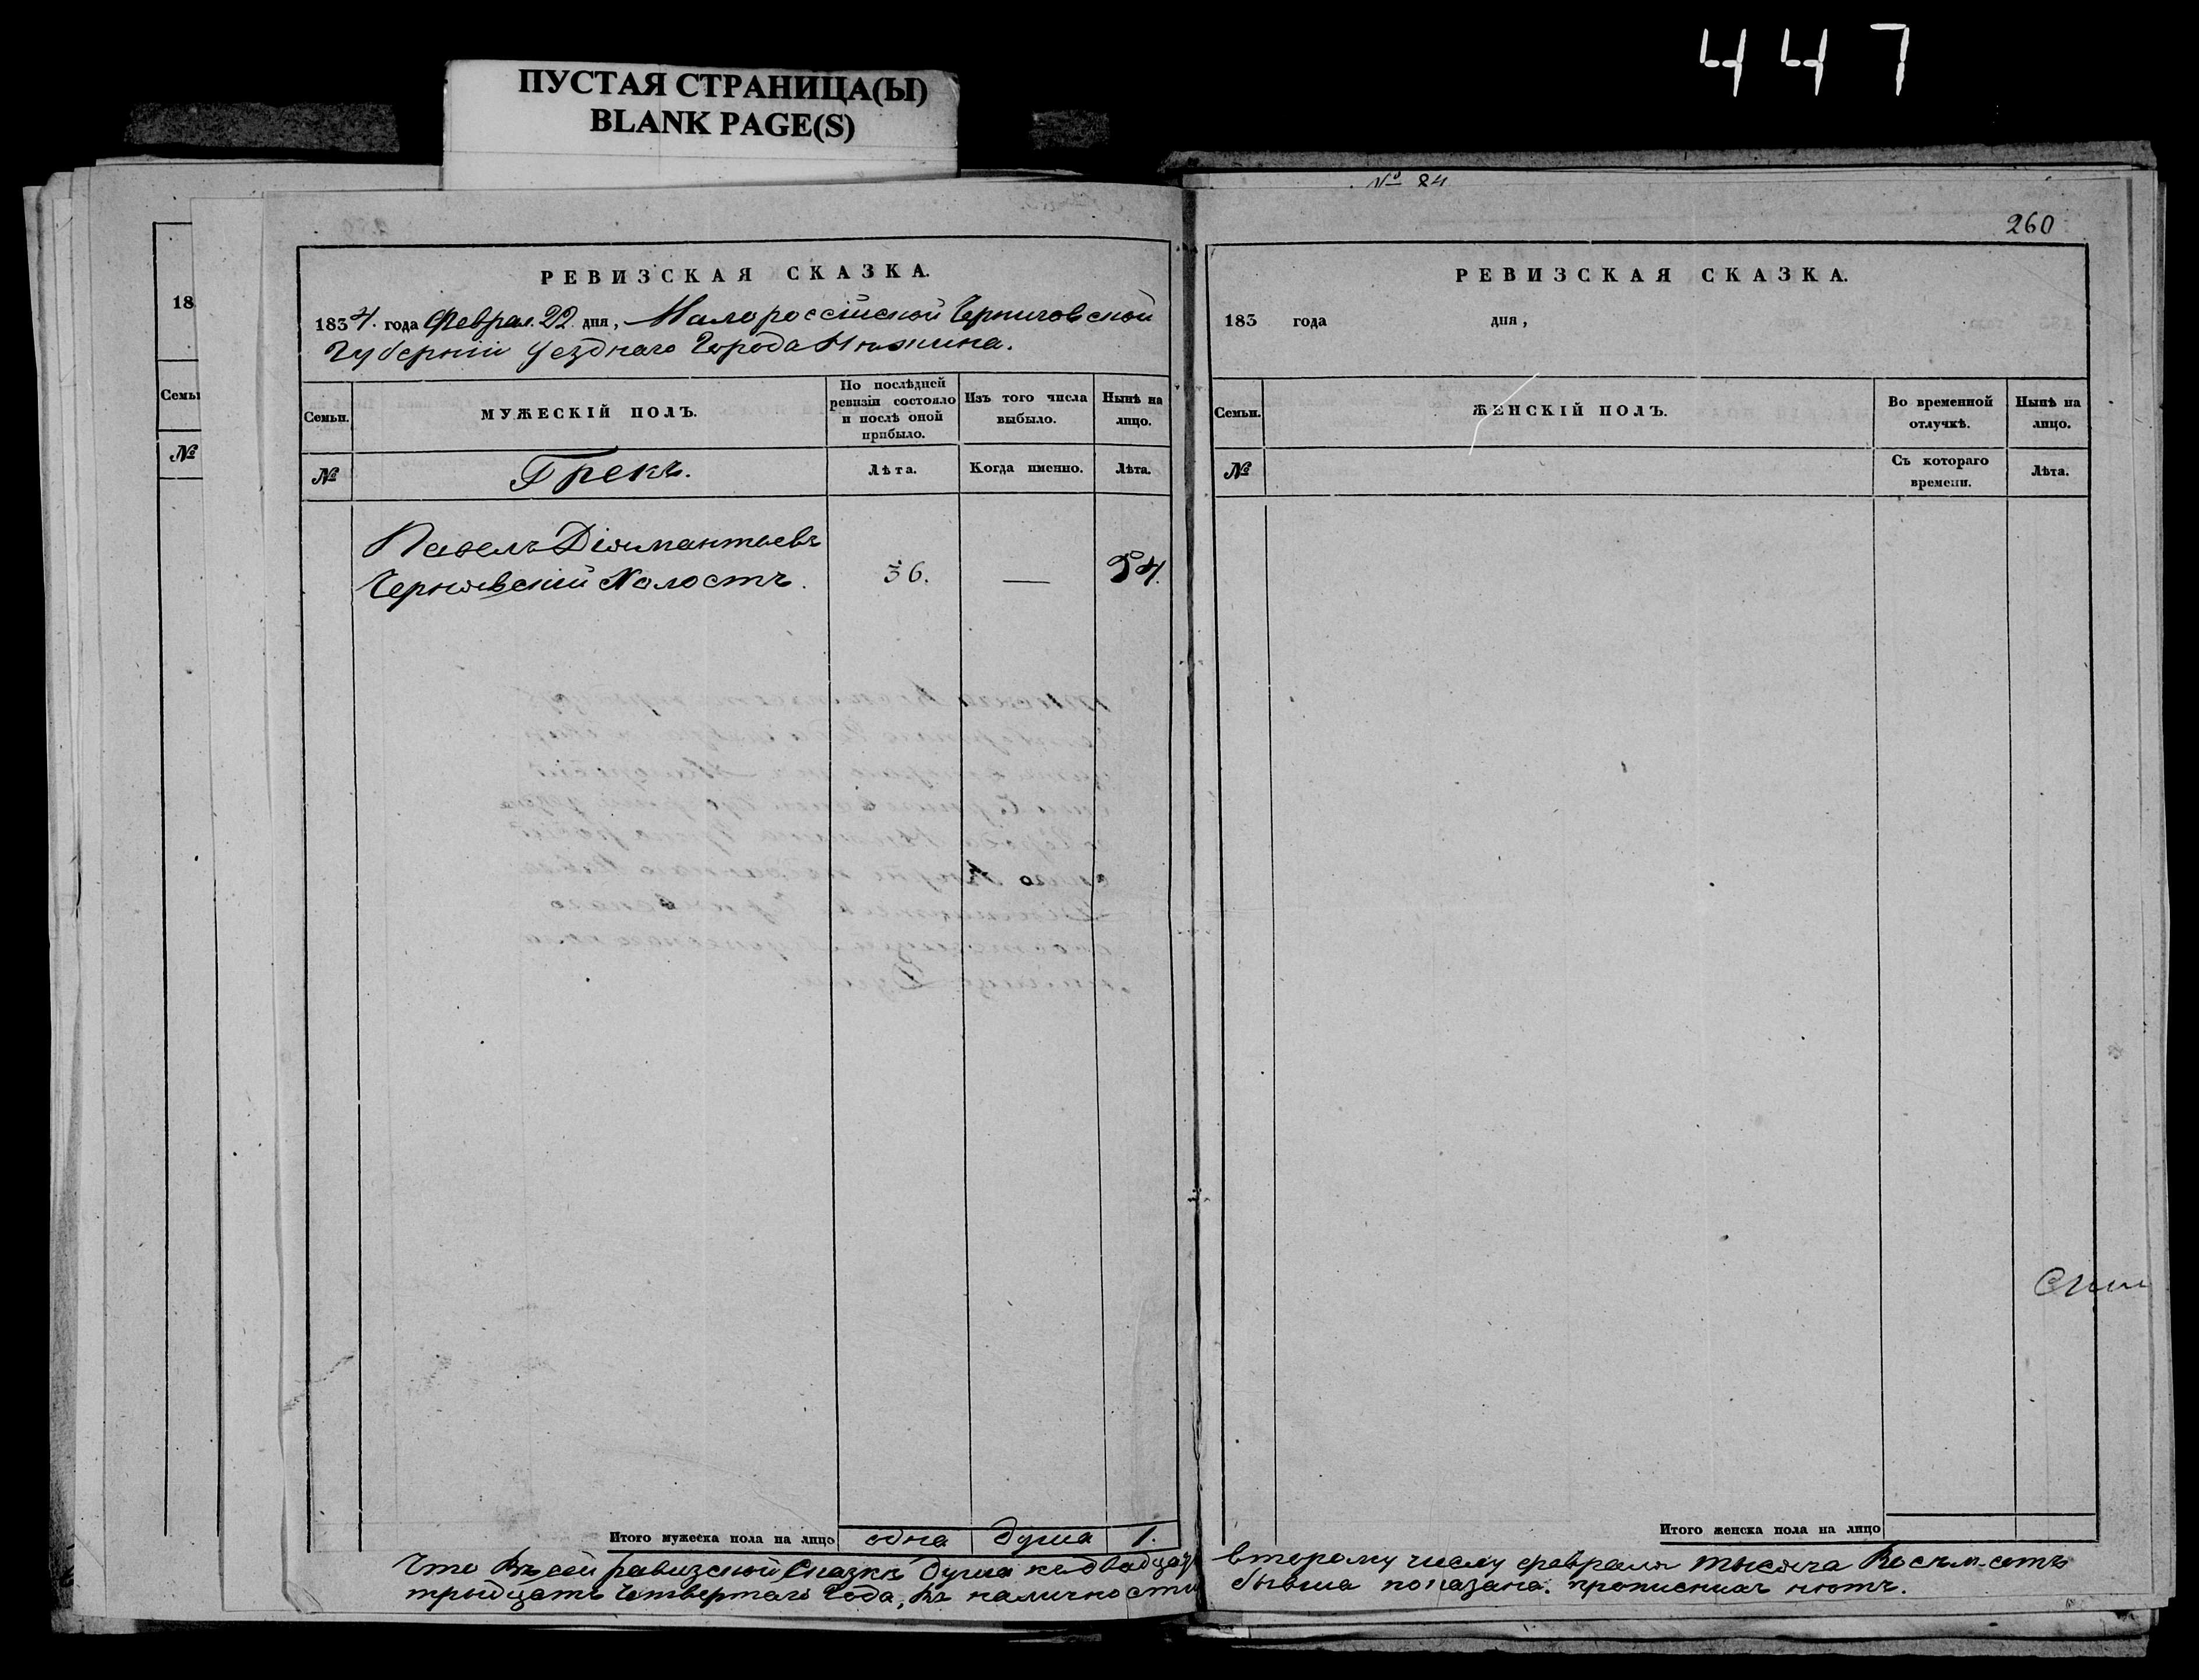 447
ПУСТАЯ СТРАНИЦА(Ы)
BLANK PAGE(S)
18
Семьи
№
РЕВИЗСКАЯ СКАЗКА.
1834. года Феврал. 22 дня, Малороссійской Черниговской
Губерніи Уезднаго Города Нѣжина.
Семьи.
МУЖЕСКІЙ ПОЛЪ.
По послѣдней ревизіи состояло и послѣ оной прибыло.
Изъ того числа выбыло.
Нынѣ на лицо.
№
Грекъ.
Лѣта.
Когда именно.
Лѣта.
Павелъ Діямантьевъ
Чернявскій Холостъ.
36.
—
54.
Итого мужеска пола на лицо
одна душа 1.
Что Въ сей ревизской Сказкѣ душа къ двадцать
тридцать Четвертаго Года, въ наличности
№ 84
260
РЕВИЗСКАЯ СКАЗКА.
183 года дня,
Семьи.
ЖЕНСКІЙ ПОЛЪ.
Во временной отлучкѣ.
Нынѣ на лицо.
№
Съ котораго времени.
Лѣта.
Итого женска пола на лицо
второму числу февраля тысяча Восемсотъ
бывша показана. прописныхъ нѣтъ.